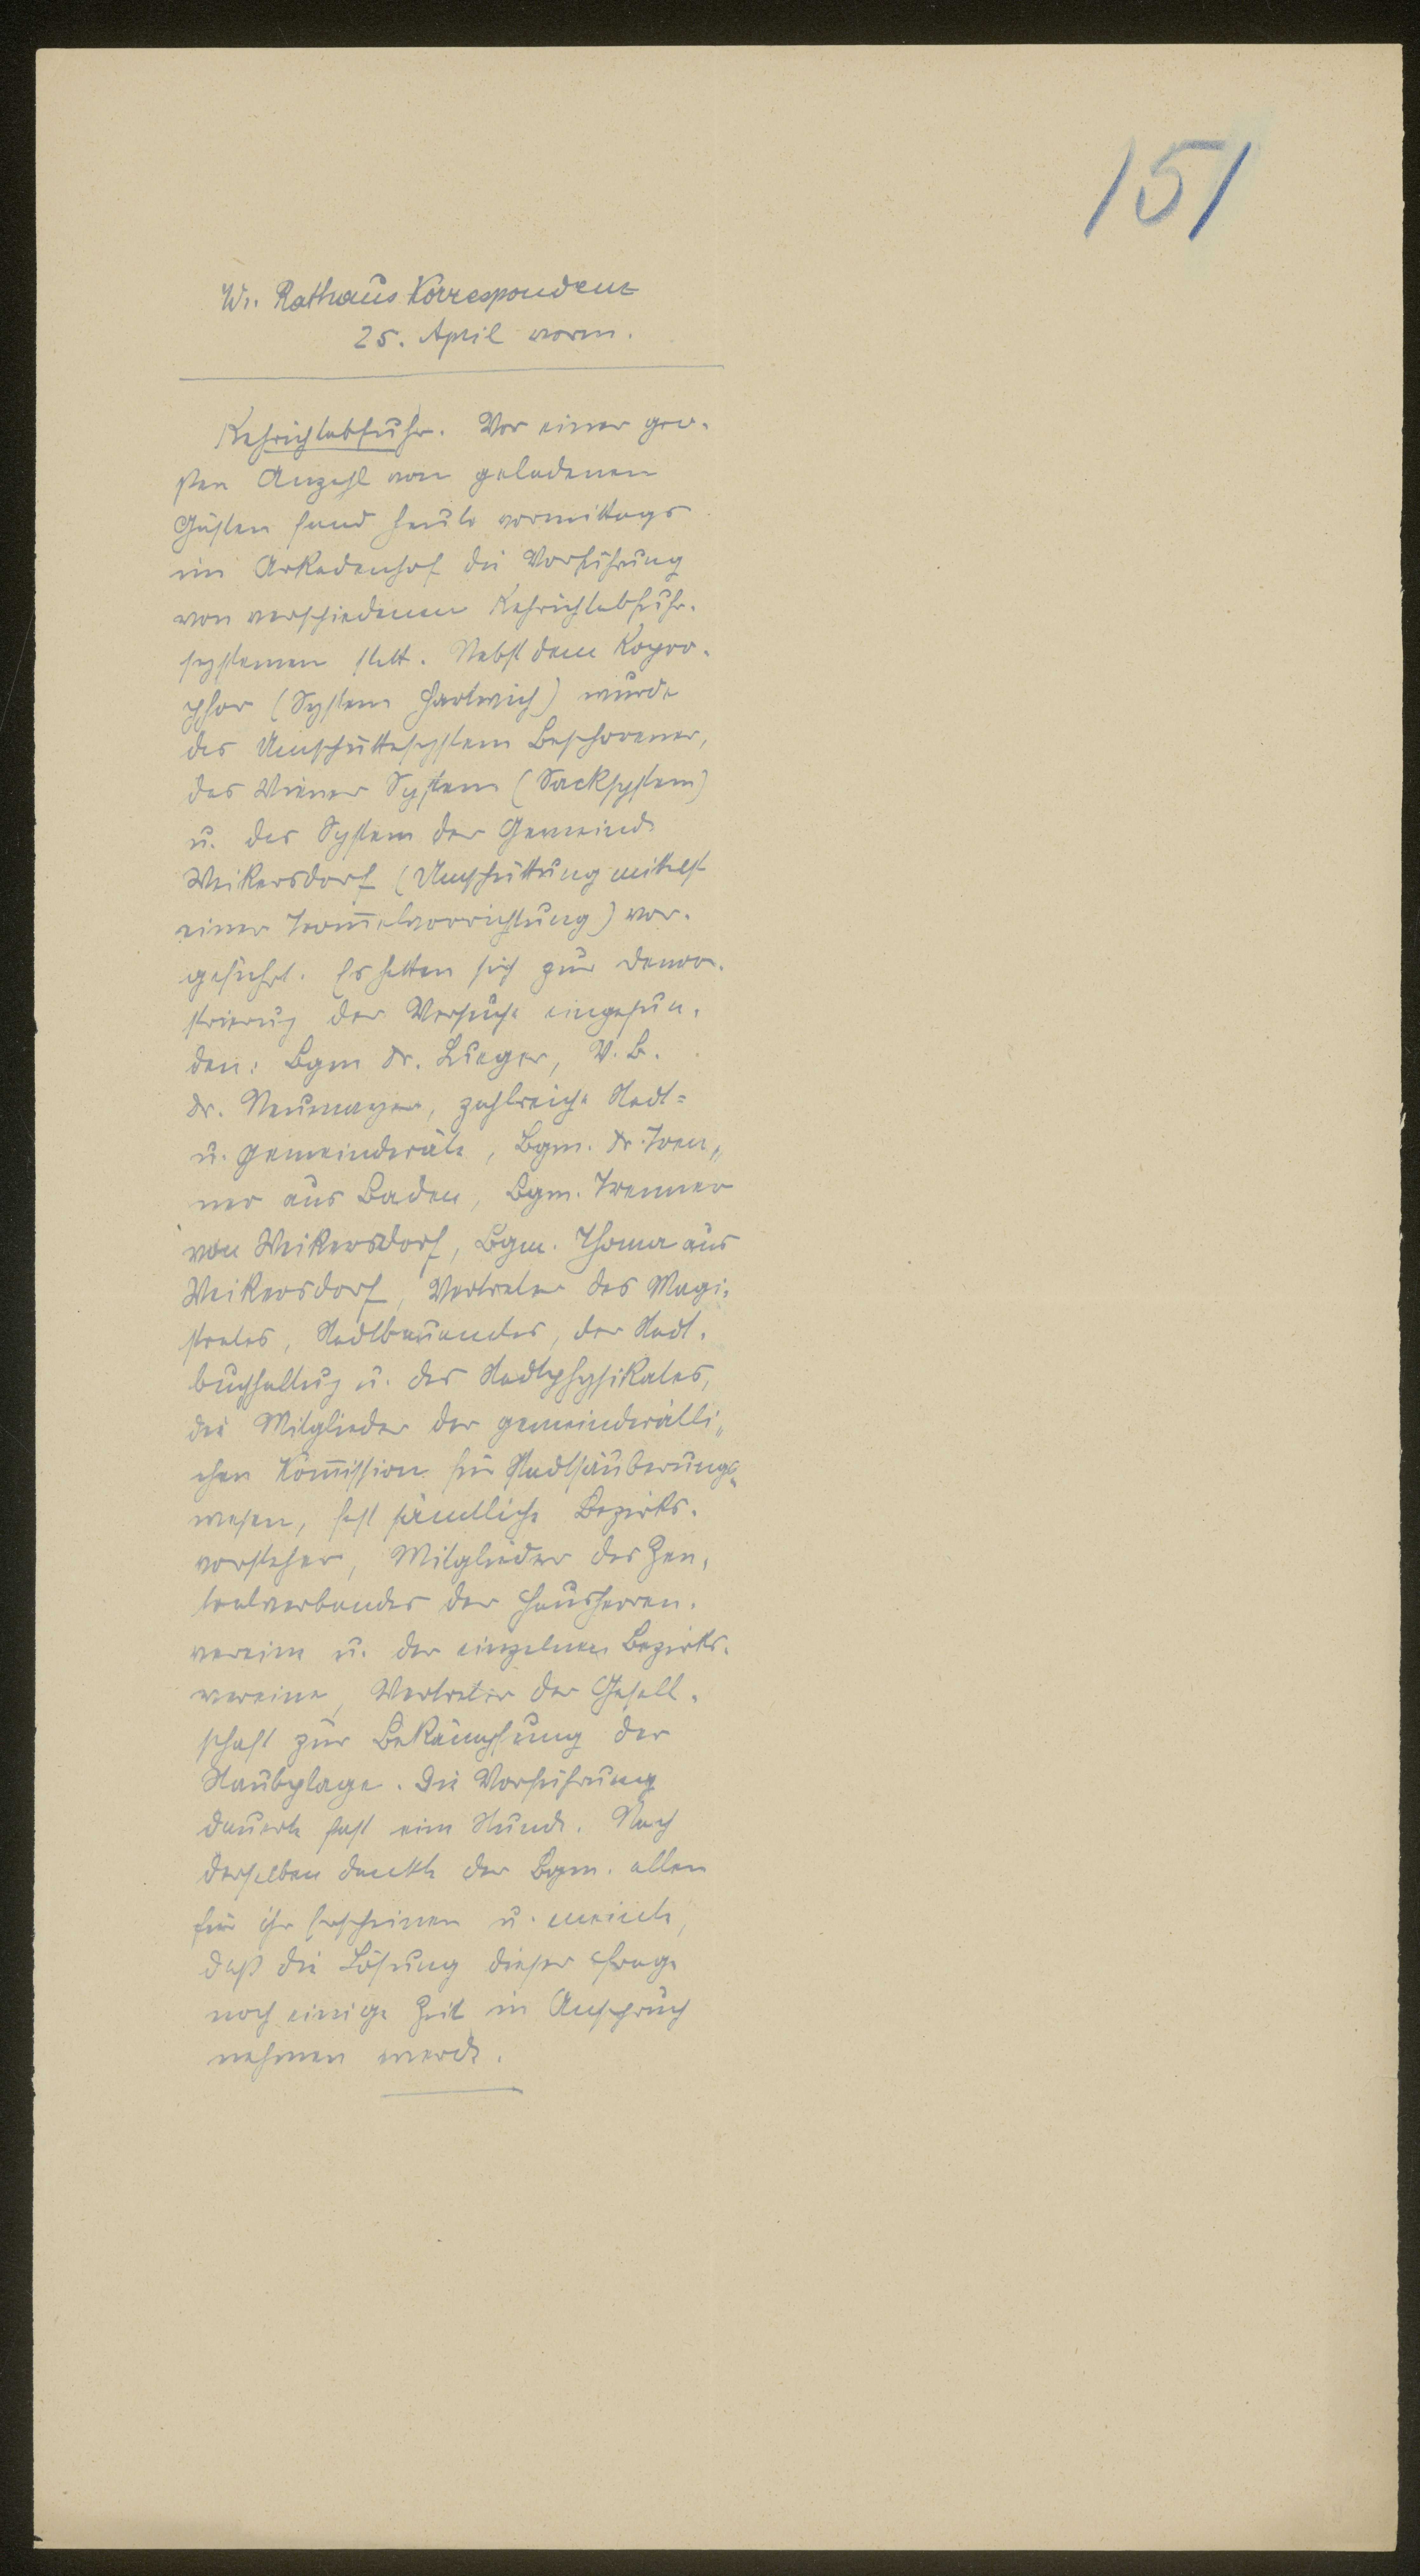 151
Wr. Rathaus Korrespondenz
25. April vorm.
Kehrichtabfuhr. Vor einer gro-
ßen Anzahl von geladenen
Gästen fand heute vormittags
im Arkadenhof die Vorführung
von verschiedenen Kehrichtabfuhr-
systemen statt. Nebst dem Kopro-
phor (System Hartwich) wurde
das Umschüttesystem Beschorener,
das Wiener System (Sacksystem)
u. das System der Gemeinde
Weikersdorf (Umschüttung mittelst
einer Trom̅elvorrichtung) vor-
geführt. Es hatten sich zur Demon-
strierung der Versuche eingefun-
den: Bgm Dr. Lueger, V. B.
Dr. Neumayer, zahlreiche Stadt=
u. Gemeinderäte, Bgm. Dr. Tren„
ner aus Baden, Bgm. Trenner
von Weikersdorf, Bgm. Thoma aus
Weikersdorf, Vertreter des Magi-
strates, Stadtbauamtes, der Stadt-
buchhaltung u. des Stadtphysikates,
die Mitglieder der gemeinderätli„
chen Kom̅ission für Stadtsäuberungs„
wesen, fast sämtliche Bezirks-
vorsteher, Mitglieder des Zen-
tralverbandes der Hausherren-
vereine u. der einzelnen Bezirks-
vereine, Vertreter der Gesell-
schaft zur Bekämpfung der
Staubplage. Die Vorführung
dauerte fast eine Stunde. Nach
derselben dankte der Bgm. allen
für ihr Erscheinen u. meinte,
daß die Lösung dieser Frage
noch einige Zeit in Anspruch
nehmen werde.